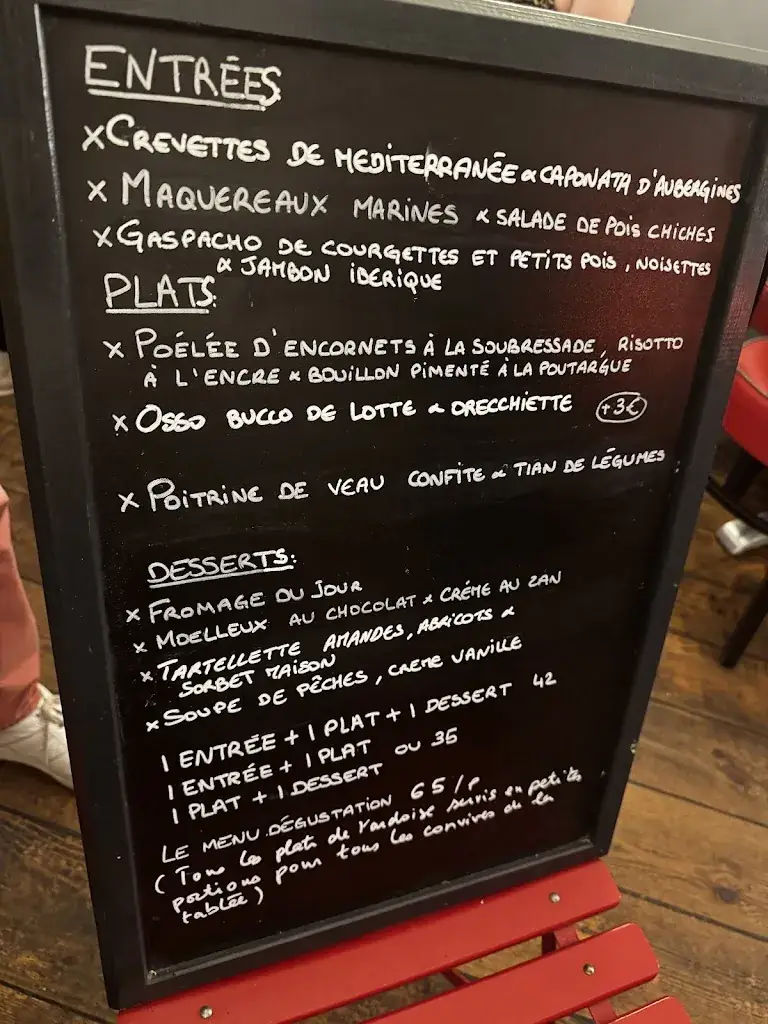 ENTRÉES
x CREVETTES DE MEDITERRANÉE & CAPONATA D'AUBERGINES
x MAQUEREAUX MARINES & SALADE DE POIS CHICHES
x GASPACHO DE COURGETTES ET PETITS POIS, NOISETTES
& JAMBON IBERIQUE
PLATS:
x POÉLÉE D'ENCORNETS À LA SOUBRESSADE, RISOTTO
À L'ENCRE & BOUILLON PIMENTÉ À LA POUTARGUE
x OSSO BUCCO DE LOTTE & ORECCHIETTE +3€
x POITRINE DE VEAU CONFITE & TIAN DE LÉGUMES
DESSERTS:
x FROMAGE DU JOUR
x MOELLEUX AU CHOCOLAT & CRÉME AU ZAN
x TARTELLETTE AMANDES, ABRICOTS &
SORBET MAISON
x SOUPE DE PÊCHES, CREME VANILLE
1 ENTRÉE + 1 PLAT + 1 DESSERT 42
1 ENTRÉE + 1 PLAT OU 36
1 PLAT + 1 DESSERT
LE MENU DÉGUSTATION 65/P
(Tous les plats de l'ardoise servis en petites
portions pour tous les convives de la
tablée)